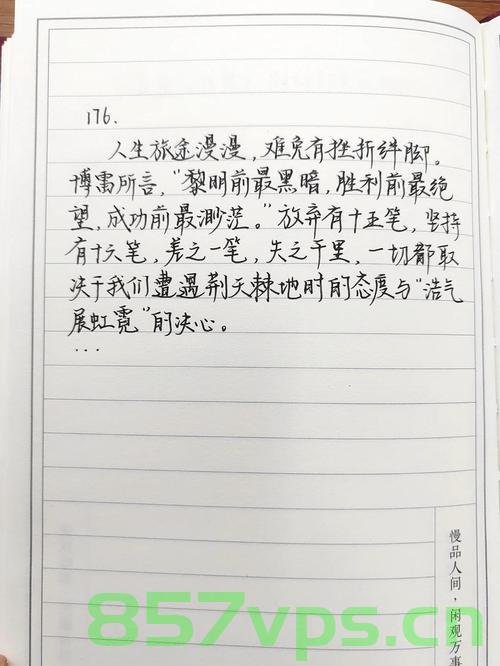 176.
人生旅途漫漫，难免有挫折绊脚。
博雷所言，“黎明前最黑暗，胜利前最绝
望，成功前最渺茫。”放弃有十五笔，坚持
有十六笔，差之一笔，失之千里，一切都取
决于我们遭遇荆天棘地时的态度与“浩气
展虹霓”的决心。
...
慢品人间，闲观万事
857vps.cn